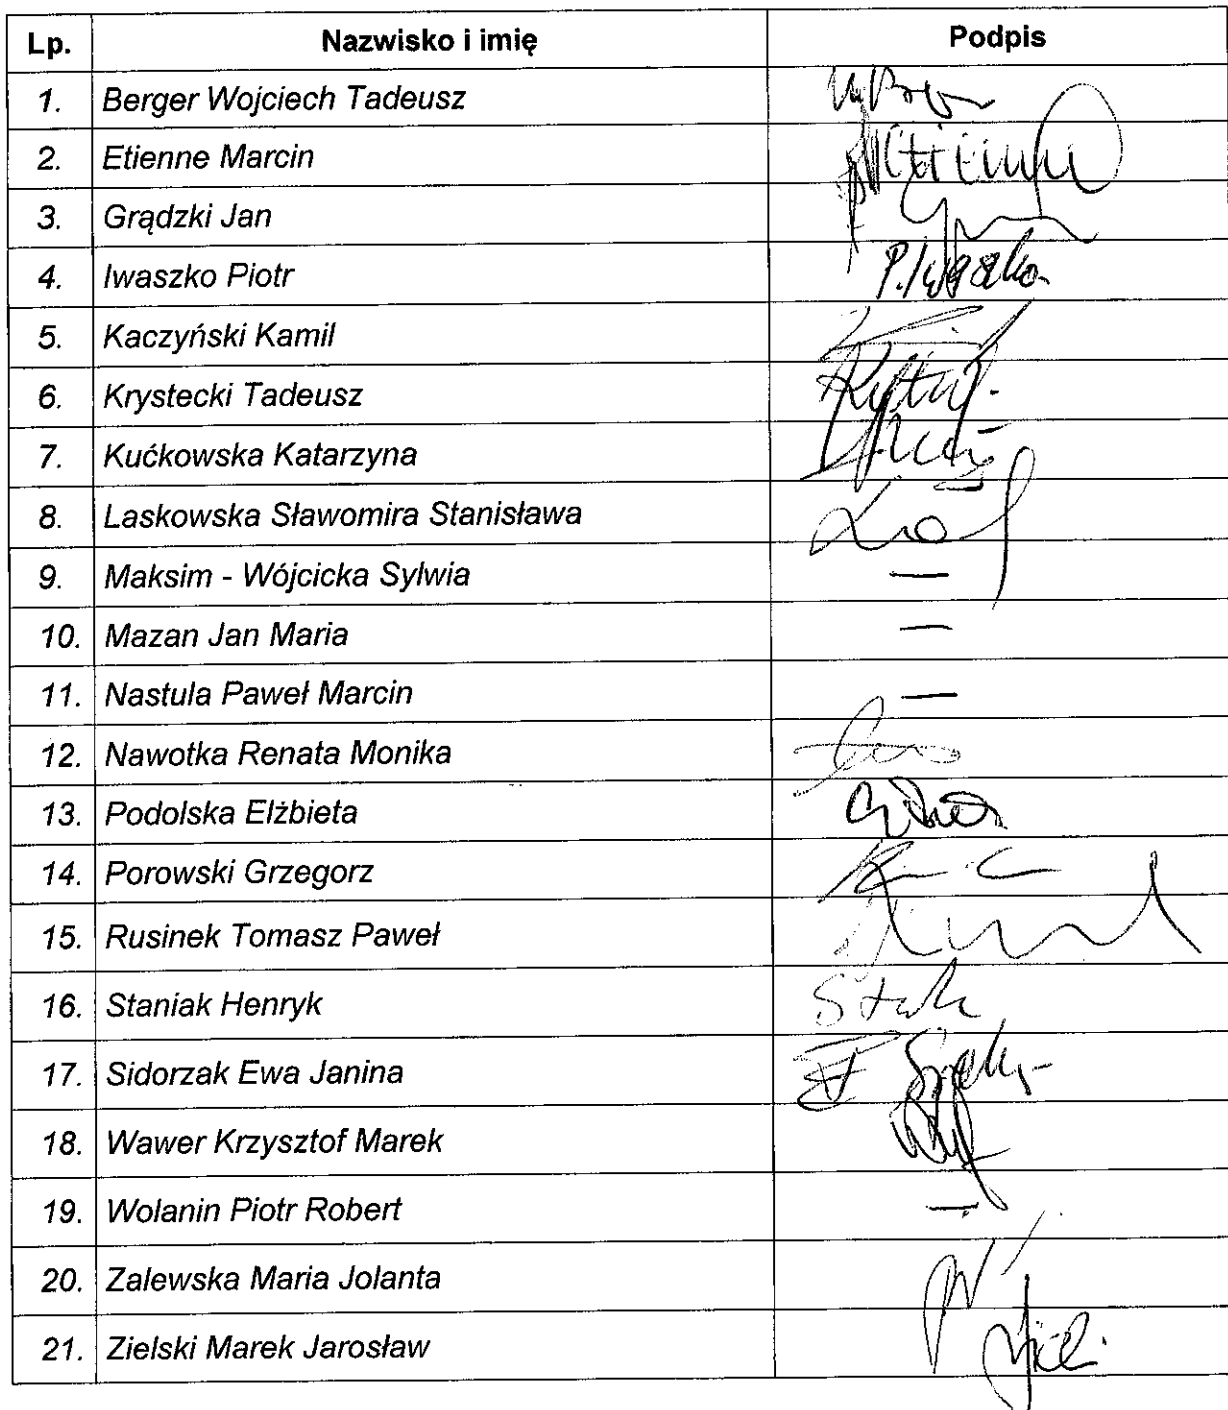 Lp. Nazwisko i imię Podpis
1. Berger Wojciech Tadeusz
2. Etienne Marcin
3. Grądzki Jan
4. Iwaszko Piotr P. Iwaszko
5. Kaczyński Kamil
6. Krystecki Tadeusz
7. Kućkowska Katarzyna
8. Laskowska Sławomira Stanisława
9. Maksim - Wójcicka Sylwia —
10. Mazan Jan Maria —
11. Nastula Paweł Marcin —
12. Nawotka Renata Monika
13. Podolska Elżbieta
14. Porowski Grzegorz
15. Rusinek Tomasz Paweł
16. Staniak Henryk
17. Sidorzak Ewa Janina
18. Wawer Krzysztof Marek
19. Wolanin Piotr Robert —
20. Zalewska Maria Jolanta
21. Zielski Marek Jarosław